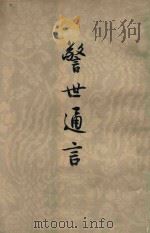 警世通言
www.mtoou.info